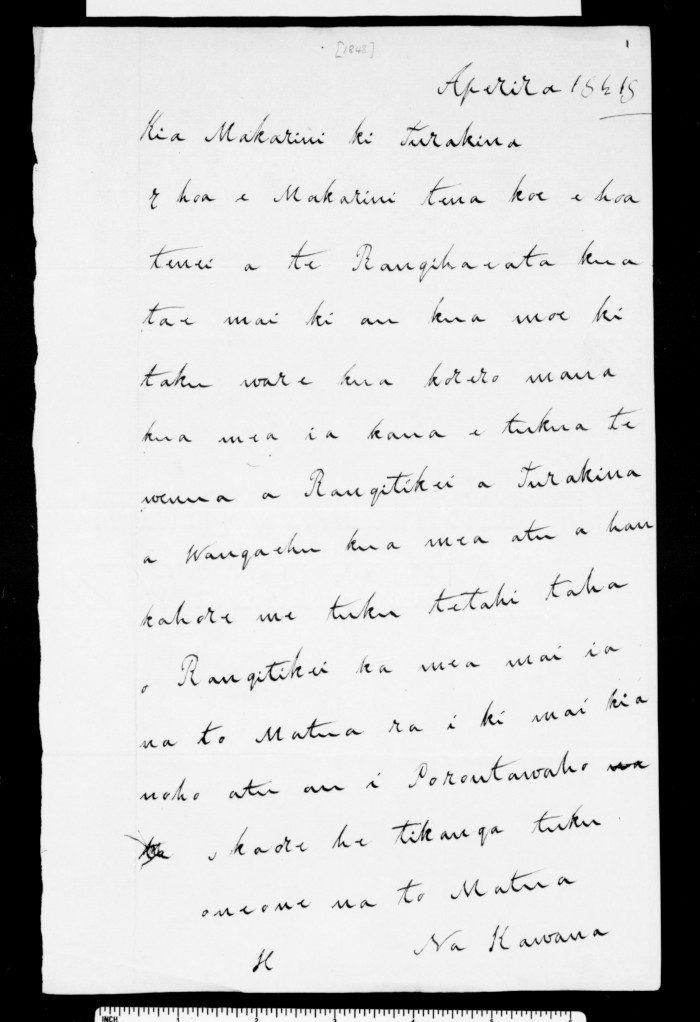 [1848]
1
Aperira 1848
Kia Makarini ki Turakina
E hoa e Makarini tena koe e hoa
tenei a te Rangihaeata kua
tae mai ki au kua moe ki
taku ware kua korero maua
kua mea ia kaua e tukua te
wenua a Rangitikei a Turakina
a Wangaehu kua mea atu a hau
kahore me tuku tetahi taha
o Rangitikei ka mea mai ia
na to Matua ra i ki mai kia
noho atu au i Poroutawaho
kaore he tikanga tuku
oneone na to Matua
Na Kawana
H
INCH 1 2 3 4 5 6